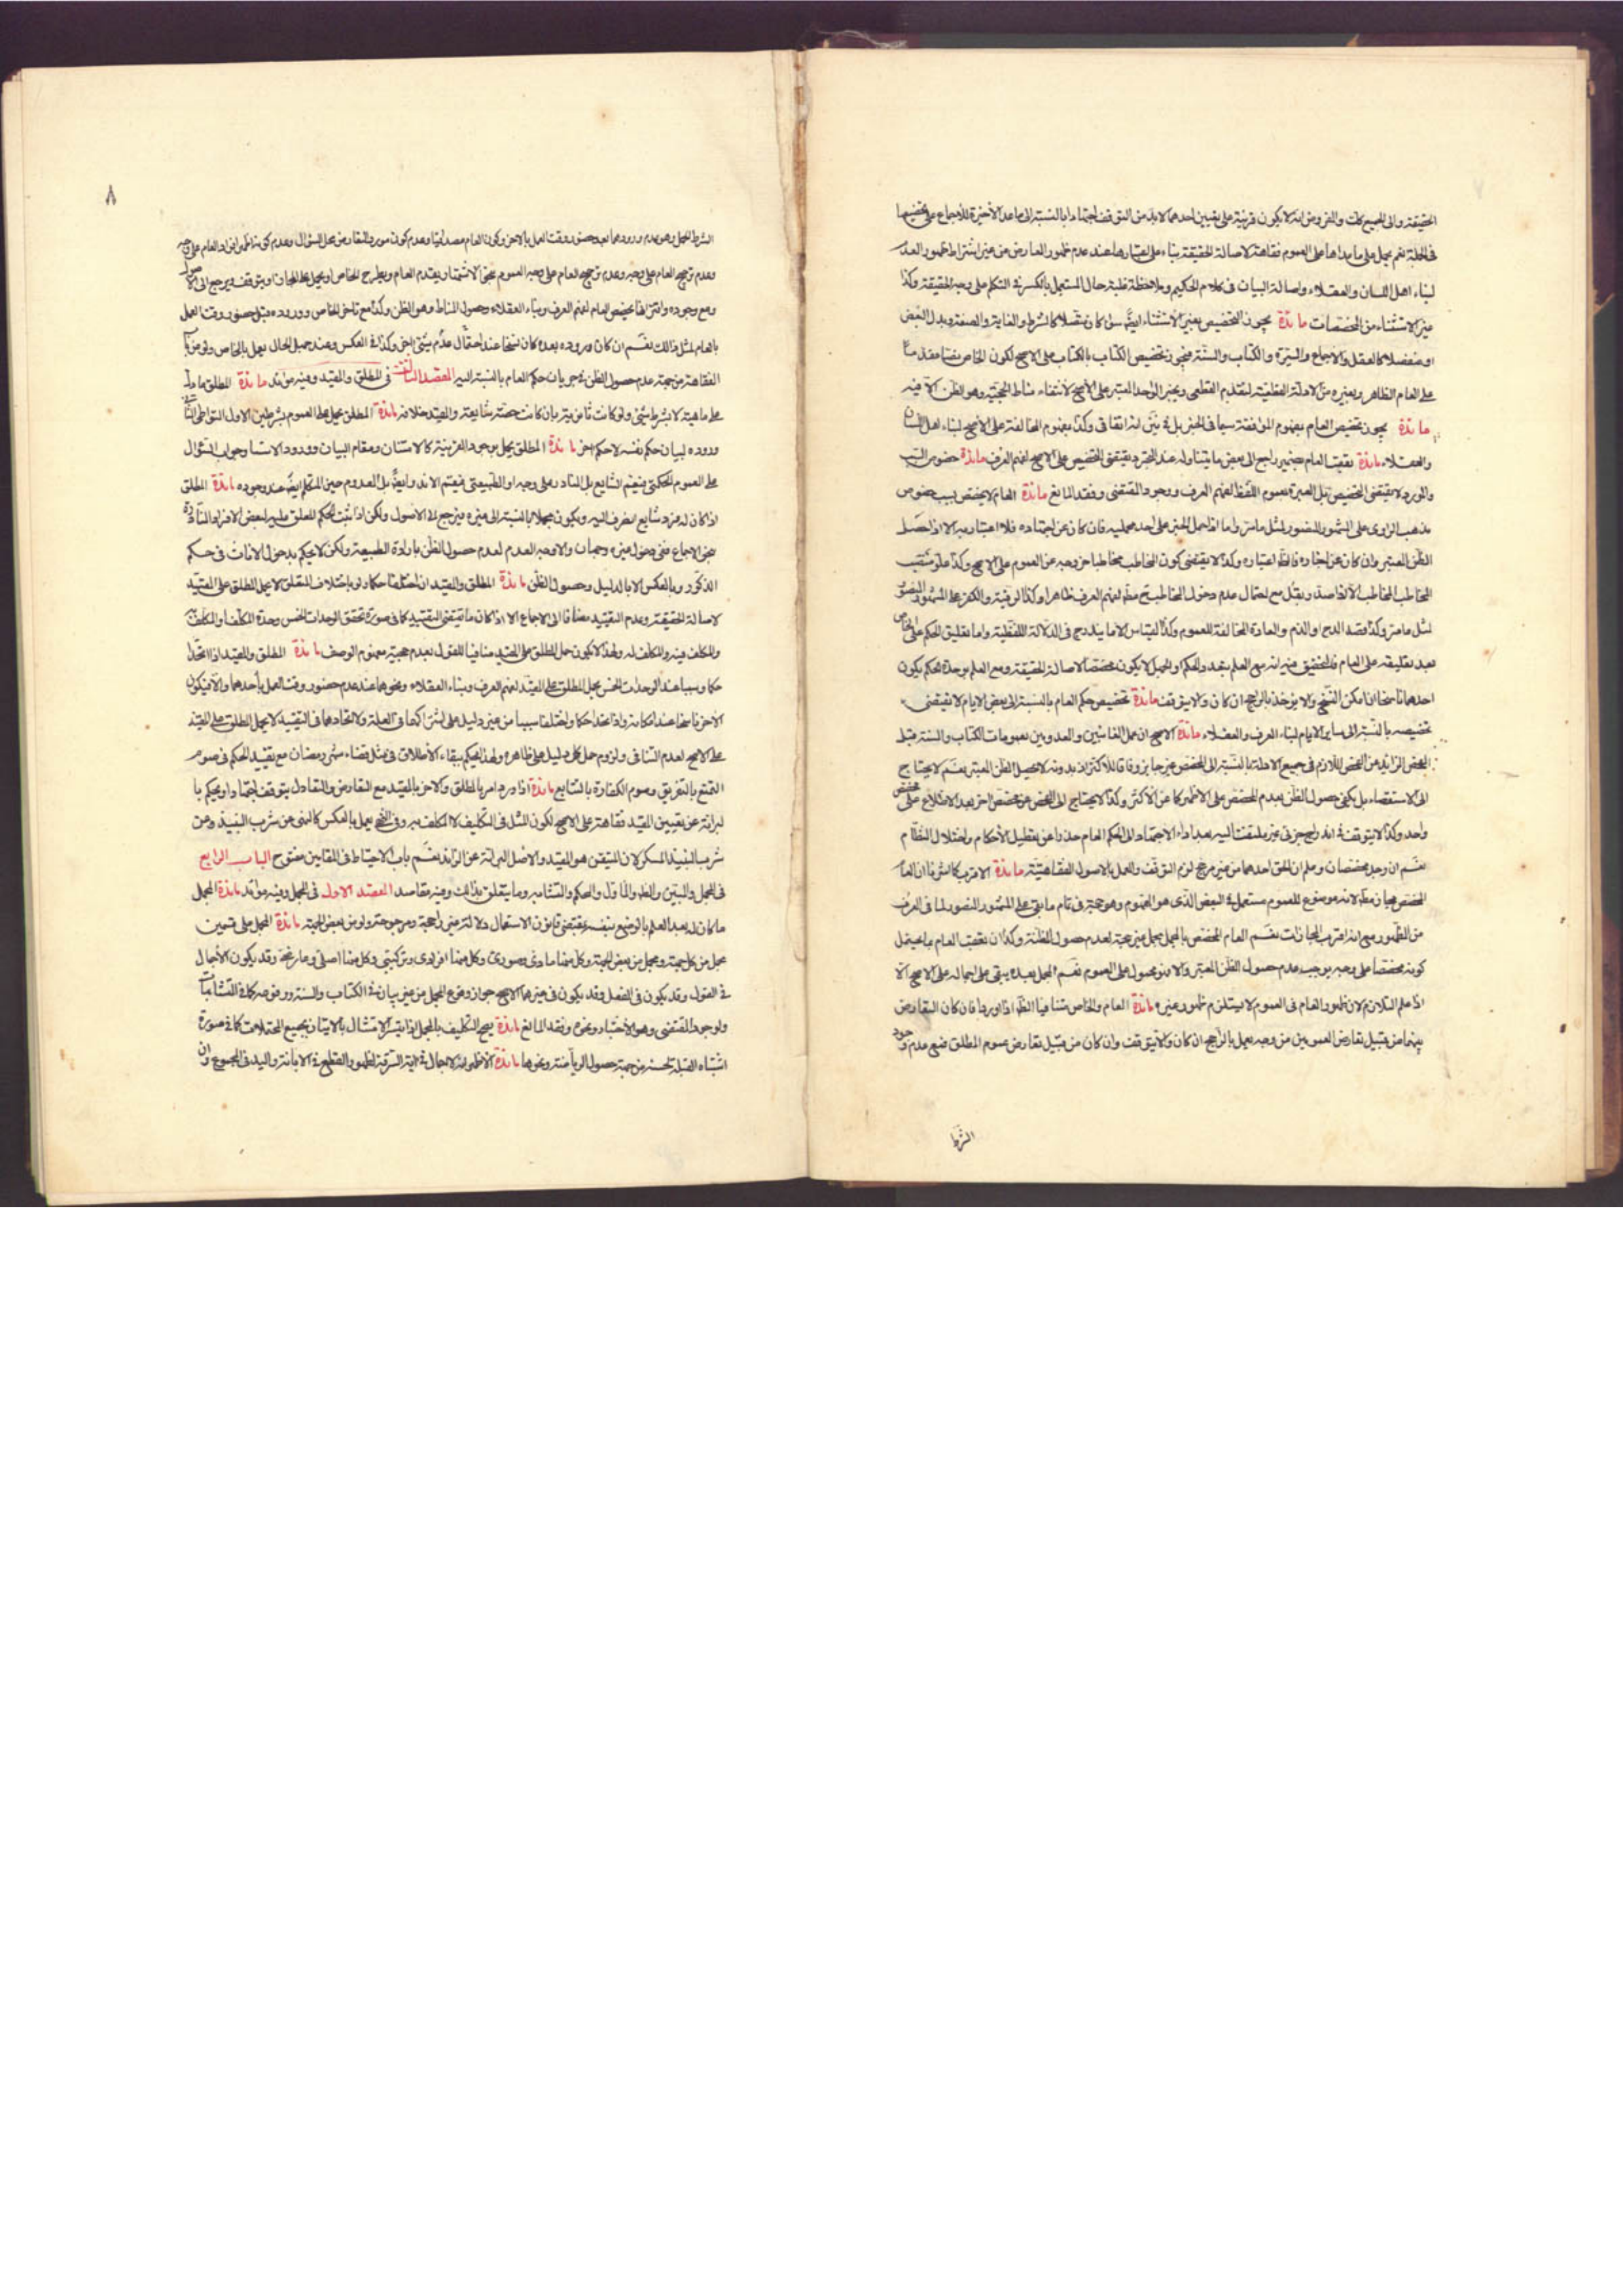 الحقيقة والى الجميع كلت والمفروض انه لا يكون قرينة على تعيين احدهما لا بد من التوقف اجتهادا بالنسبة الى ما عدا الأخيرة للأجماع على تخصيصها
في الجملة نعم يحمل على ما عداها على العموم فقاهة لاصالة الحقيقة بناء على اعتبارها عند عدم ظهور المعارض من غير اشتراط ظهور العدم
لبناء اهل اللسان والعقلاء واصالة البيان في كلام الحكيم وملاحظة غلبة حال المستعمل بالكسر في التكلم على وجه الحقيقة وكذا
غير الاستثناء من المخصصات مائدة يجوز التخصيص بغير الاستثناء ايضا سواء كان متصلا كالشرط والغاية والصفة وبدل البعض
او منفصلا كالعقل والاجماع والسيرة والكتاب والسنة فيجوز تخصيص الكتاب بالكتاب على الاصح لكون الخاص نصا مقدما
على العام الظاهر وبغيره من الادلة القطعية لتقديم القطعى وبخبر الواحد المعتبر على الاصح لانتفاء مناط الحجية وهو الظن الا فيه
مائدة يجوز تخصيص العام بمفهوم الموافقة سيما في الخبر بل بين انه اتفاقى وكذا بمفهوم المخالفة على الاصح لبناء اهل اللسان
والعقلاء مائدة تعقب العام بضمير راجع الى بعض ما يتناوله عند التجرد يقتضى التخصيص على الاصح لفهم العرف مائدة خصوص السبب
والمورد لا يقتضى التخصيص بل العبرة بعموم اللفظ لفهم العرف ووجود المقتضى وفقد المانع مائدة العام لا يخصص بسبب خصوص
مذهب الراوى على المشهور المنصور لمثل ما مر واما اذا حمل الخبر على احد محمليه فان كان عن اجتهاده فلا اعتبار به الا اذا حصل
الظن المعتبر وان كان عن اخباره فالظ اعتباره وكذا لا يقتضى كون المخاطب مخاطبا خروجه عن العموم على الاصح وكذا
لمثل ما مر وكذا قصد المدح او الذم والعادة المخالفة للعموم وكذا القياس الا ما يندرج في الدلالة اللفظية واما تعليق الحكم على الخاص
بعد تعليقه على العام فالتحقيق فيه انه مع العلم بتعدد الحكم او الجهل لا يكون مخصصا لاصالة الحقيقة ومع العلم بوحدة الحكم يكون
احدهما ناسخا ان امكن النسخ والا يؤخذ بالراجح ان كان والا يتوقف مائدة تخصيص حكم العام بالنسبة الى بعض الايام لا يقتضى
تخصيصه بالنسبة الى ساير الايام لبناء العرف والعقلاء مائدة الاصح ان عمل الغائبين والمعدومين بعمومات الكتاب والسنة قبل
الفحص الزائد عن الفحص اللازم في جميع الادلة بالنسبة الى المخصص غير جايز وفاقا للأكثر اذ بدونه لا يحصل الظن المعتبر نعم لا يحتاج
الى الاستقصاء بل يكفى حصول الظن بعدم المخصص على الاظهر كما عن الأكثر وكذا لا يحتاج الى الفحص عن مخصص اخر بعد الاطلاع على مخصص
واحد وكذا لا يتوقف في اندراج جزئى غير ملتفت اليه بعد اداء الاجتهاد الى الحكم العام حذرا عن تعطيل الأحكام واختلال النظام
نعم ان وجد مخصصان وعلم ان الحق احدهما من غير مرجح لزم التوقف والعمل بالاصول الفقاهتية مائدة الاقرب كالشرط ان العام
المخصص مجاز مطلقا لانه موضوع للعموم مستعمل في البعض الذى هو الخصوم وهو حجة في تمام ما بقى على المشهور المنصور لما في العرف
من الظهور مع انه اقرب المجازات نعم العام المخصص بالمجمل مجمل غير حجة لعدم حصول المظنة وكذا ان تعقب العام بما يحتمل
كونه مخصصا على وجه يوجب عدم حصول الظن المعتبر والا فهو محمول على العموم نعم المجمل بعده يبقى على اجماله على الاصح الا
اذا علم التلازم لان ظهور العام في العموم لا يستلزم ظهور غيره مائدة العام والخاص متنافيا الظ اذا اوردا فان كان التعارض
بينهما من قبيل تعارض العمومين من وجه يعمل بالراجح ان كان والا يتوقف وان كان من قبيل تعارض عموم المطلق فمع عدم وجود
الشرط
٨
الشرط للحمل وهو عدم ورودهما بعد حضور وقت العمل بالاخر وكون العام مصدقيا وعدم كون مورد التعارض محل السؤال وعدم كونه اظهر افراد العام على وجه
وعدم ترجيح العام على وجه وعدم ترجيح العام على وجه العموم يقدم العام ويطرح الخاص او يحمل على المجاز او يتوقف ويرجع الى الاصول
ومع وجوده واقترانهما يخصص العام لفهم العرف وبناء العقلاء وحصول المناط وهو الظن وكذا مع تاخر الخاص ووروده قبل حضور وقت العمل
بالعام لمثل ذالك نعم ان كان وروده بعده كان ناسخا عند احتمال عدم سبق البيان وكذا في العكس وعند جهل الحال يعمل بالخاص
الفقاهة من جهة عدم حصول الظن في جريان حكم العام بالنسبة اليه المقصد الثالث في المطلق والمقيد وفيه موائد مائدة المطلق ما دل
على ماهية لا بشرط شئ ولو كانت ثانوية بان كانت حصة شايعة والمقيد خلافه مائدة المطلق يحمل على العموم بشرطين الاول التواطى الثانى
وروده لبيان حكم نفسه لا حكم اخر مائدة المطلق يحمل بوجود القرينة كالامتنان ومقام البيان وورود الاستثناء وجواب السؤال
على العموم الحكمتى فيعم الشايع بل النادر على وجه او الطبيعتى فيعم الاندر ايضا بل المعدوم حين التكلم ايضا عند وجوده مائدة المطلق
اذا كان له فرد شايع انصرف اليه ويكون مجملا بالنسبة الى غيره فيرجع الى الاصول ولكن اذا ثبت الحكم المعلق عليه لبعض الافراد النادرة
بنحو الاجماع ففى دخول غيره وجهان والاوجه العدم لعدم حصول الظن بارادة الطبيعة ولكن لا يحكم بدخول الاناث في حكم
الذكور وبالعكس الا بالدليل وحصول الظن مائدة المطلق والمقيد ان اختلفا حكما ولو باختلاف المتعلق لا يحمل المطلق على المقيد
لاصالة الحقيقة وعدم التقييد مضافا الى الاجماع الا اذا كان ما يقتضى التقييد كما في صورة تحقق الوحدات الخمس وحدة المكلف والمكلف
والمكلف فيه والمكلف له ولهذا لا يكون حمل المطلق على المقيد منافيا للقول بعدم حجية مفهوم الوصف مائدة المطلق والمقيد اذا اتحدا
حكما وسببا عند الوحدات الخمس يحمل المطلق على المقيد لفهم العرف وبناء العقلاء ونحوهما عند عدم حضور وقت العمل بأحدهما والا فيكون
الاخر ناسخا عند امكانه واذا اتحدا حكما واختلفا سببا من غير دليل على اشتراكهما في العلة ولا اتحادهما في التقييد لا يحمل المطلق على المقيد
على الاصح لعدم التنافى ولزوم حمل كل دليل على ظاهره ولهذا يحكم ببقاء الأطلاق في مثل قضاء شهر رمضان مع تقييد الحكم في صوم
التمتع بالتفريق وصوم الكفارة بالتتابع مائدة اذا ورد امر بالمطلق والاخر بالمقيد مع التعارض والتعادل يتوقف اجتهادا ويحكم با
لبرائة عن تعيين المقيد فقاهة على الاصح لكون الشك في التكليف لا المكلف به وفى النهى يعمل بالعكس كالنهى عن شرب النبيذ وعن
شرب النبيذ المسكر لان المتيقن هو المقيد والاصل البرائة عن الزائد نعم باب الاحتياط في المقامين مفتوح الباب الرابع
في المجمل والمبين والظ والماول والمحكم والمتشابه وما يتعلق بذالك وفيه مقاصد المقصد الاول في المجمل وفيه موائد مائدة المجمل
ما كان له بعد العلم بالوضع نفسه بمقتضى قانون الاستعمال دلالة غير راجحة ومرجوحة ولو من بعض الجهة مائدة المجمل على قسمين
مجمل من كل جهة ومجمل من بعض الجهة وكل منهما مادى وصورى وكل منهما افرادى وتركيبى وكل منهما اصلى وعارضى وقد يكون الأجمال
في القول وقد يكون في الفعل وقد يكون في غيرهما الاصح جواز وقوع المجمل من غير بيان في الكتاب والسنة ووقوعه كما في المتشابهات
ولوجود المقتضى وهو الأختبار ونحوه وفقد المانع مائدة يصح التكليف بالمجمل اذا تيسر الامتثال بالاتيان بجميع المحتملات كما في صورة
اشتباه القبلة لحسنه من جهة حصول الرياضة ونحوها مائدة الاظهر انه لا اجمال في اية السرقة لظهور القطع في الابانة واليد في المجموع وان